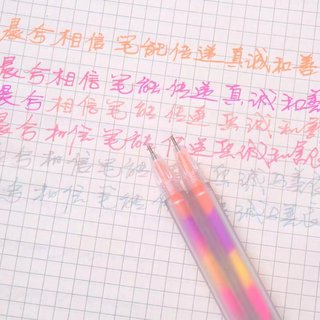 晨合相信笔能传递真诚和善
晨合相信笔能传递真诚和善
晨合相信笔能传递真诚和善
晨合相信笔能传递真诚和善
合相信笔能 递真诚和善
来相信笔 传递真诚和善